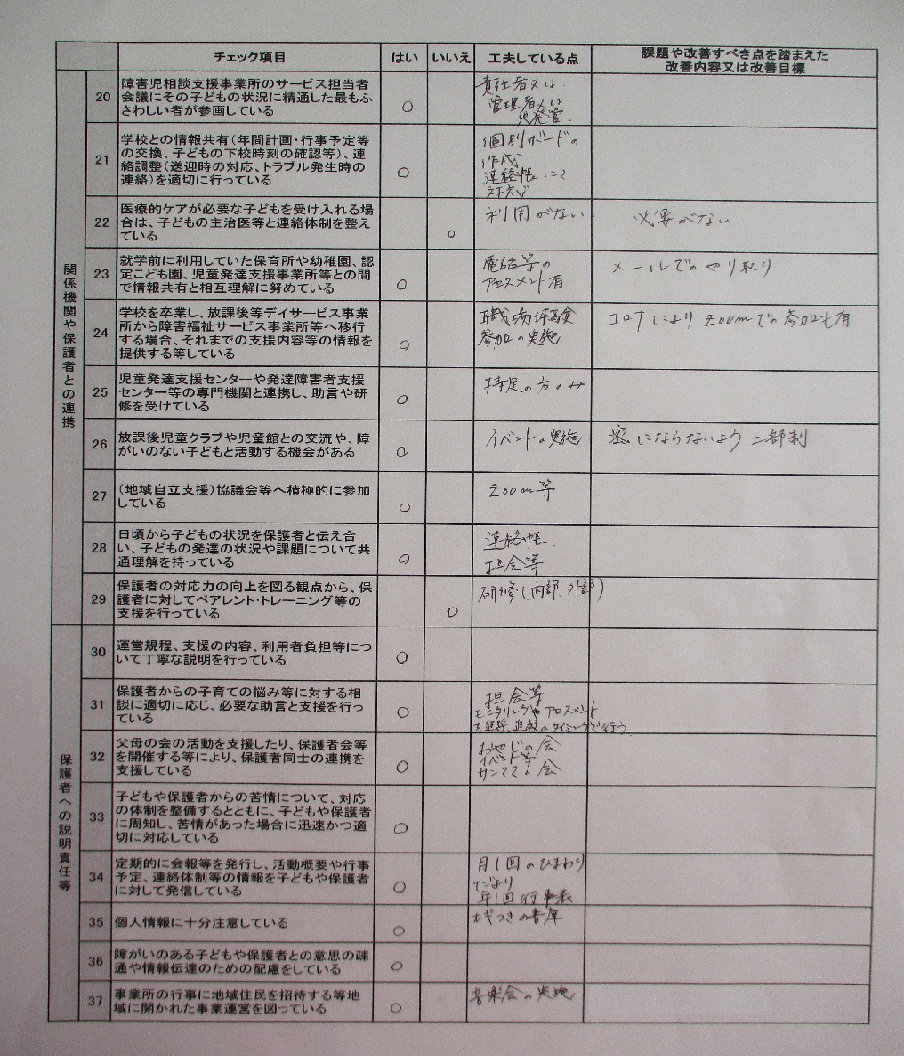 チェック項目 はい いいえ 工夫している点 課題や改善すべき点を踏まえた
改善内容又は改善目標
関係機関や保護者との連携
20 障害児相談支援事業所のサービス担当者
会議にその子どもの状況に精通した最もふ
さわしい者が参画している
○
責任者又は
管理者又は
児発管
21 学校との情報共有(年間計画・行事予定等
の交換、子どもの下校時刻の確認等)、連
絡調整(送迎時の対応、トラブル発生時の
連絡)を適切に行っている
○
個別ボードの
作成
連絡帳にて
対応
22 医療的ケアが必要な子どもを受け入れる場
合は、子どもの主治医等と連絡体制を整え
ている
○
利用がない
必要がない
23 就学前に利用していた保育所や幼稚園、認
定こども園、児童発達支援事業所等との間
で情報共有と相互理解に努めている
○
電話等の
アセスメント済
メールでのやり取り
24 学校を卒業し、放課後等デイサービス事業
所から障害福祉サービス事業所等へ移行
する場合、それまでの支援内容等の情報を
提供する等している
○
職場体験
参加の実施
コロナにより zoomでの参加も有
25 児童発達支援センターや発達障害者支援
センター等の専門機関と連携し、助言や研
修を受けている
○
特定の方のみ
26 放課後児童クラブや児童館との交流や、障
がいのない子どもと活動する機会がある
○
イベントの実施
密にならないよう 二部制
27 (地域自立支援)協議会等へ積極的に参加
している
○
zoom等
28 日頃から子どもの状況を保護者と伝え合
い、子どもの発達の状況や課題について共
通理解を持っている
○
連絡帳.
担会等
29 保護者の対応力の向上を図る観点から、保
護者に対してペアレント・トレーニング等の
支援を行っている
○
研修(内部、外部)
保護者への説明責任等
30 運営規程、支援の内容、利用者負担等につ
いて丁寧な説明を行っている
○
31 保護者からの子育ての悩み等に対する相
談に適切に応じ、必要な助言と支援を行っ
ている
○
担会等
モニタリングやアセスメント
のタイミングで行う
32 父母の会の活動を支援したり、保護者会等
を開催する等により、保護者同士の連携を
支援している
○
おやじの会
イベント等
の会
33 子どもや保護者からの苦情について、対応
の体制を整備するとともに、子どもや保護者
に周知し、苦情があった場合に迅速かつ適
切に対応している
○
34 定期的に会報等を発行し、活動概要や行事
予定、連絡体制等の情報を子どもや保護者
に対して発信している
○
月1回のひまわり
だより
年1回行事表
35 個人情報に十分注意している
○
かぎつきの書庫
36 障がいのある子どもや保護者との意思の疎
通や情報伝達のための配慮をしている
○
37 事業所の行事に地域住民を招待する等地
域に開かれた事業運営を図っている
○
音楽会の実施